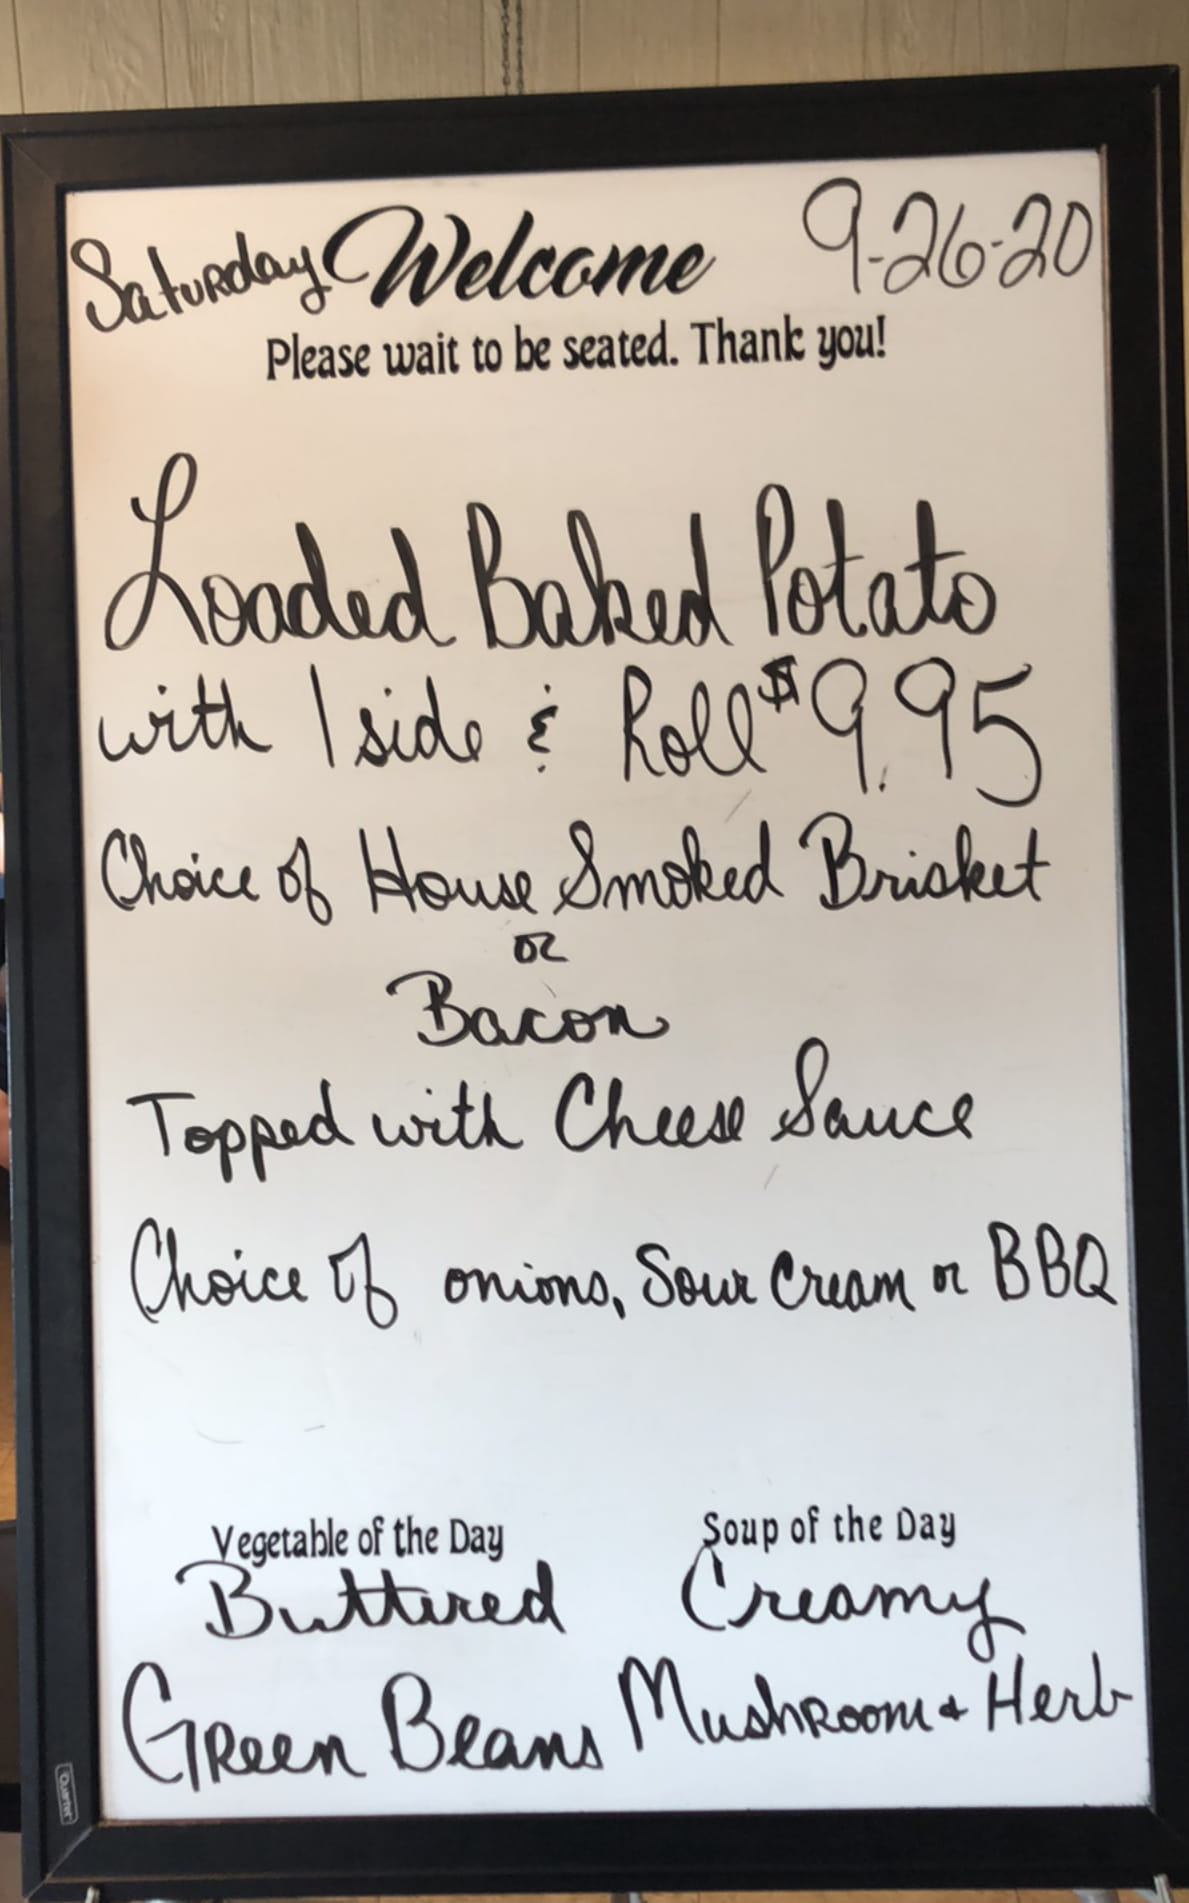 Saturday Welcome 9-26-20
Please wait to be seated. Thank you!
Loaded Baked Potato
with 1 side & Roll $9.95
Choice of House Smoked Brisket
or
Bacon
Topped with Cheese Sauce
Choice of onions, Sour Cream or BBQ
Vegetable of the Day
Buttered
Green Beans
Soup of the Day
Creamy
Mushroom & Herb
Quartet